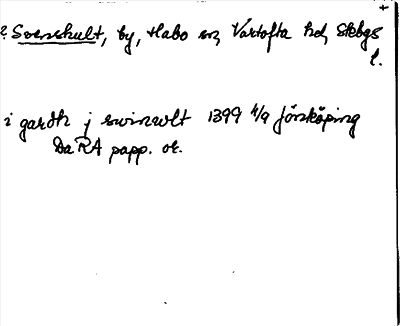 +
? Svenshult, by, Habo sn, Vartofta hd, Skbgs
l.
i gardh j swinwlt 1399 4/9 Jönköping
Da RA papp. or.